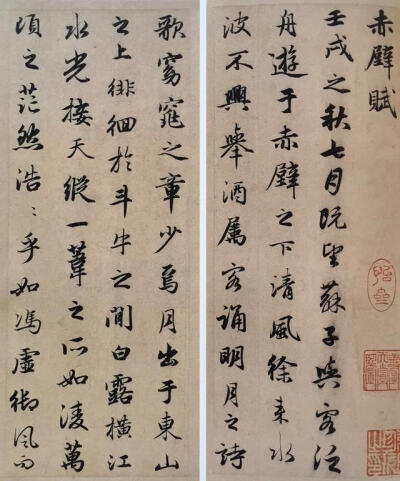 赤壁賦
壬戌之秋七月既望蘇子與客泛
舟遊于赤壁之下清風徐來水
波不興舉酒属客誦明月之詩
歌窈窕之章少焉月出于東山
之上徘徊於斗牛之間白露橫江
水光接天縱一葦之所如淩萬
頃之茫然浩〻乎如馮虛御風而